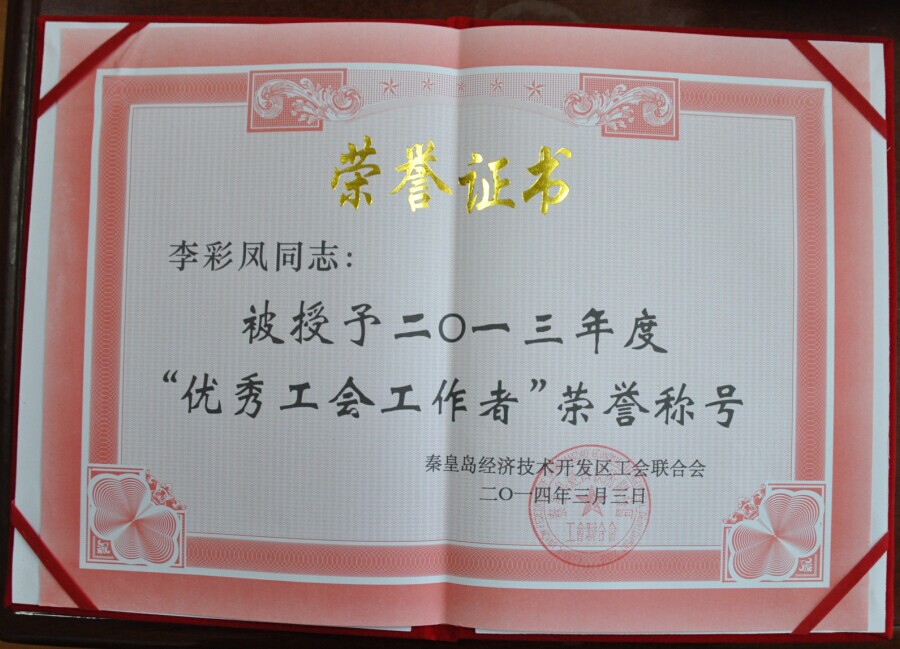 荣誉证书
李彩凤同志：
被授予二〇一三年度
“优秀工会工作者”荣誉称号
秦皇岛经济技术开发区工会联合会
二〇一四年三月三日
工会联合会